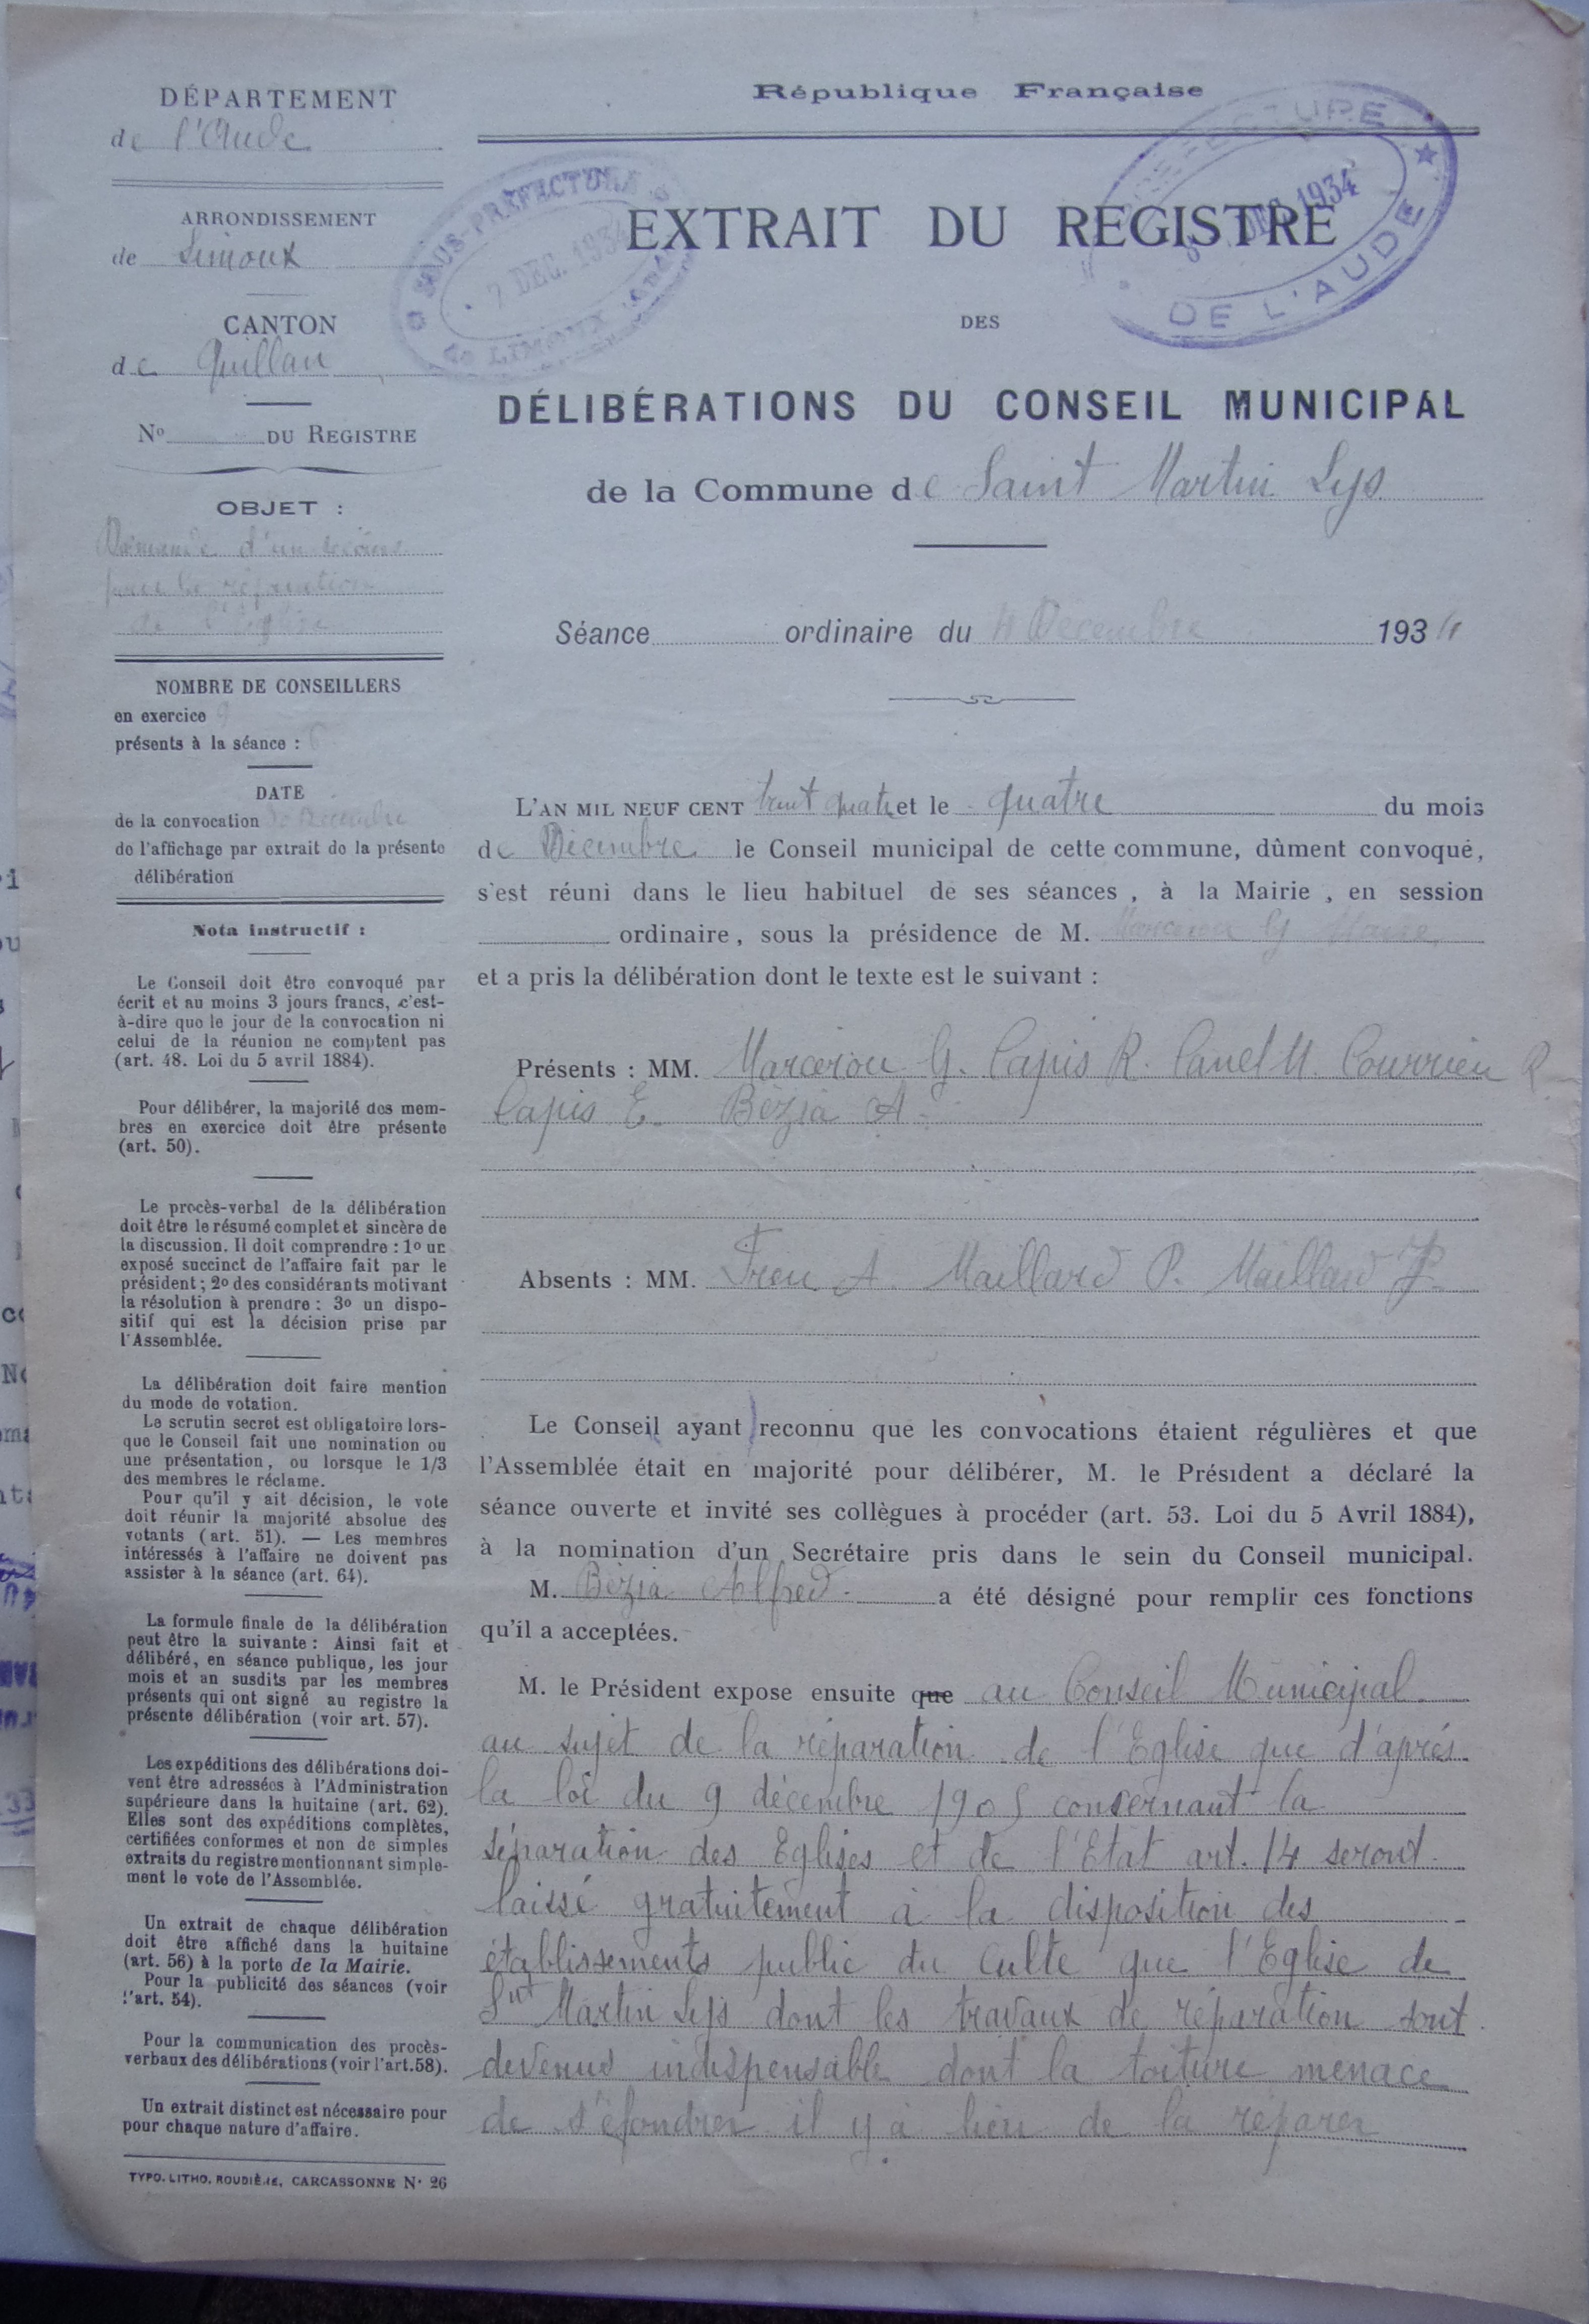 DÉPARTEMENT
de l'Aude
ARRONDISSEMENT
de Limoux
CANTON
de Quillan
No DU REGISTRE
OBJET :
Demande d'un secours
pour la réparation
de l'Eglise
NOMBRE DE CONSEILLERS
en exercice 9
présents à la séance : 6
DATE
de la convocation Décembre
de l'affichage par extrait de la présente
délibération
Nota instructif :
Le Conseil doit être convoqué par
écrit et au moins 3 jours francs, c'est-
à-dire que le jour de la convocation ni
celui de la réunion ne comptent pas
(art. 48. Loi du 5 avril 1884).
Pour délibérer, la majorité des mem-
bres en exercice doit être présente
(art. 50).
Le procès-verbal de la délibération
doit être le résumé complet et sincère de
la discussion. Il doit comprendre : 1o un
exposé succinct de l'affaire fait par le
président ; 2o des considérants motivant
la résolution à prendre : 3o un dispo-
sitif qui est la décision prise par
l'Assemblée.
La délibération doit faire mention
du mode de votation.
Le scrutin secret est obligatoire lors-
que le Conseil fait une nomination ou
une présentation, ou lorsque le 1/3
des membres le réclame.
Pour qu'il y ait décision, le vote
doit réunir la majorité absolue des
votants (art. 51). — Les membres
intéressés à l'affaire ne doivent pas
assister à la séance (art. 64).
La formule finale de la délibération
peut être la suivante : Ainsi fait et
délibéré, en séance publique, les jour
mois et an susdits par les membres
présents qui ont signé au registre la
présente délibération (voir art. 57).
Les expéditions des délibérations doi-
vent être adressées à l'Administration
supérieure dans la huitaine (art. 62).
Elles sont des expéditions complètes,
certifiées conformes et non de simples
extraits du registre mentionnant simple-
ment le vote de l'Assemblée.
Un extrait de chaque délibération
doit être affiché dans la huitaine
(art. 56) à la porte de la Mairie.
Pour la publicité des séances (voir
l'art. 54).
Pour la communication des procès-
verbaux des délibérations (voir l'art.58).
Un extrait distinct est nécessaire pour
pour chaque nature d'affaire.
TYPO. LITHO. ROUDIÈRE, CARCASSONNE No 26
République Française
SOUS-PRÉFECTURE
7 DEC. 1934
DE LIMOUX (AUDE)
PRÉFECTURE
DEC 1934
DE L'AUDE
EXTRAIT DU REGISTRE
DES
DÉLIBÉRATIONS DU CONSEIL MUNICIPAL
de la Commune de Saint Martin Lys
Séance ordinaire du 4 Décembre 1934
L'AN MIL NEUF CENT trent quatre et le quatre du mois
de Décembre le Conseil municipal de cette commune, dûment convoqué,
s'est réuni dans le lieu habituel de ses séances , à la Mairie , en session
ordinaire, sous la présidence de M. Marcerou G Maire
et a pris la délibération dont le texte est le suivant :
Présents : MM. Marcerou G. Capis R. Canel M. Courrieu R
Capis E. Bézia A.
Absents : MM. Freu A. Maillard P. Maillard J.
Le Conseil ayant reconnu que les convocations étaient régulières et que
l'Assemblée était en majorité pour délibérer, M. le Président a déclaré la
séance ouverte et invité ses collègues à procéder (art. 53. Loi du 5 Avril 1884),
à la nomination d'un Secrétaire pris dans le sein du Conseil municipal.
M. Bézia Alfred a été désigné pour remplir ces fonctions
qu'il a acceptées.
M. le Président expose ensuite que au Conseil Municipal
au sujet de la réparation de l'Eglise que d'après
la loi du 9 décembre 1905 consernant la
séparation des Eglises et de l'Etat art. 14 seront
laissé gratuitement à la disposition des
établissements public du culte que l'Eglise de
Snt Martin Lys dont les travaux de réparation sont
devenus indispensable dont la toiture menace
de s'éfondrer il y a lieu de la réparer